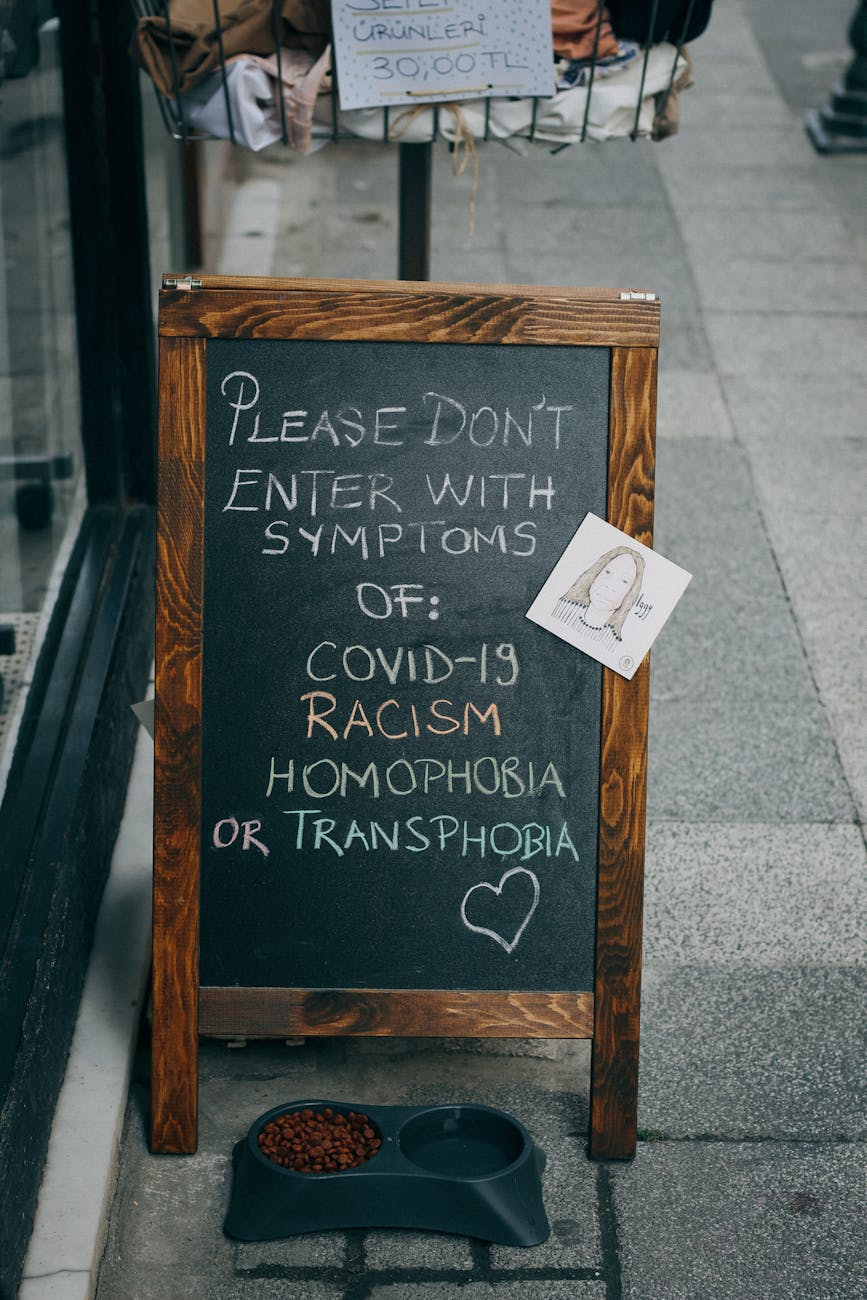 SEPET
ÜRÜNLERİ
30,00TL
PLEASE DON'T
ENTER WITH
SYMPTOMS
OF:
COVID-19
RACISM
HOMOPHOBIA
OR TRANSPHOBIA
Iggy